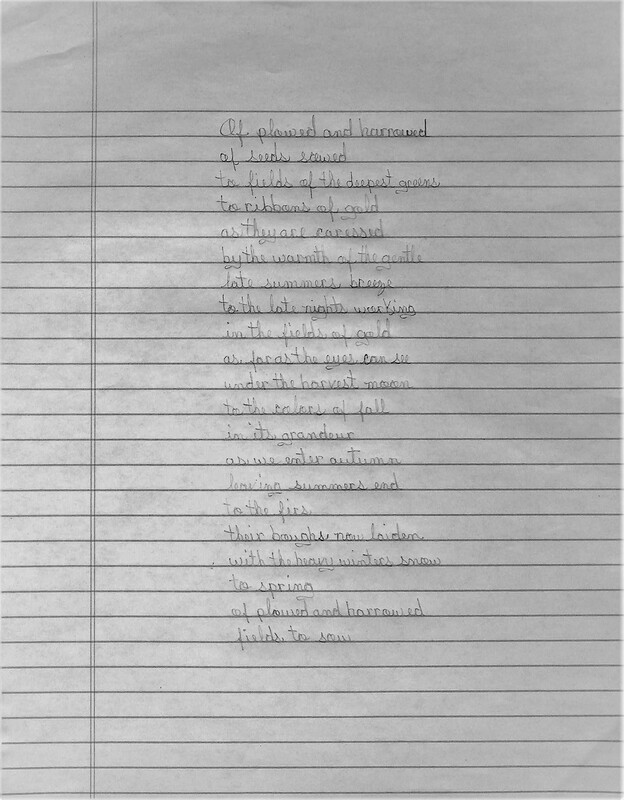 Of plowed and harrowed
of seeds sowed
to fields of the deepest greens
to ribbons of gold
as they are caressed
by the warmth of the gentle
late summers breeze
to the late nights working
in the fields of gold
as far as the eyes can see
under the harvest moon
to the colors of fall
in its grandeur
as we enter autumn
leaving summers end
to the firs
their boughs now laiden
with the heavy winters snow
to spring
of plowed and harrowed
fields to sow